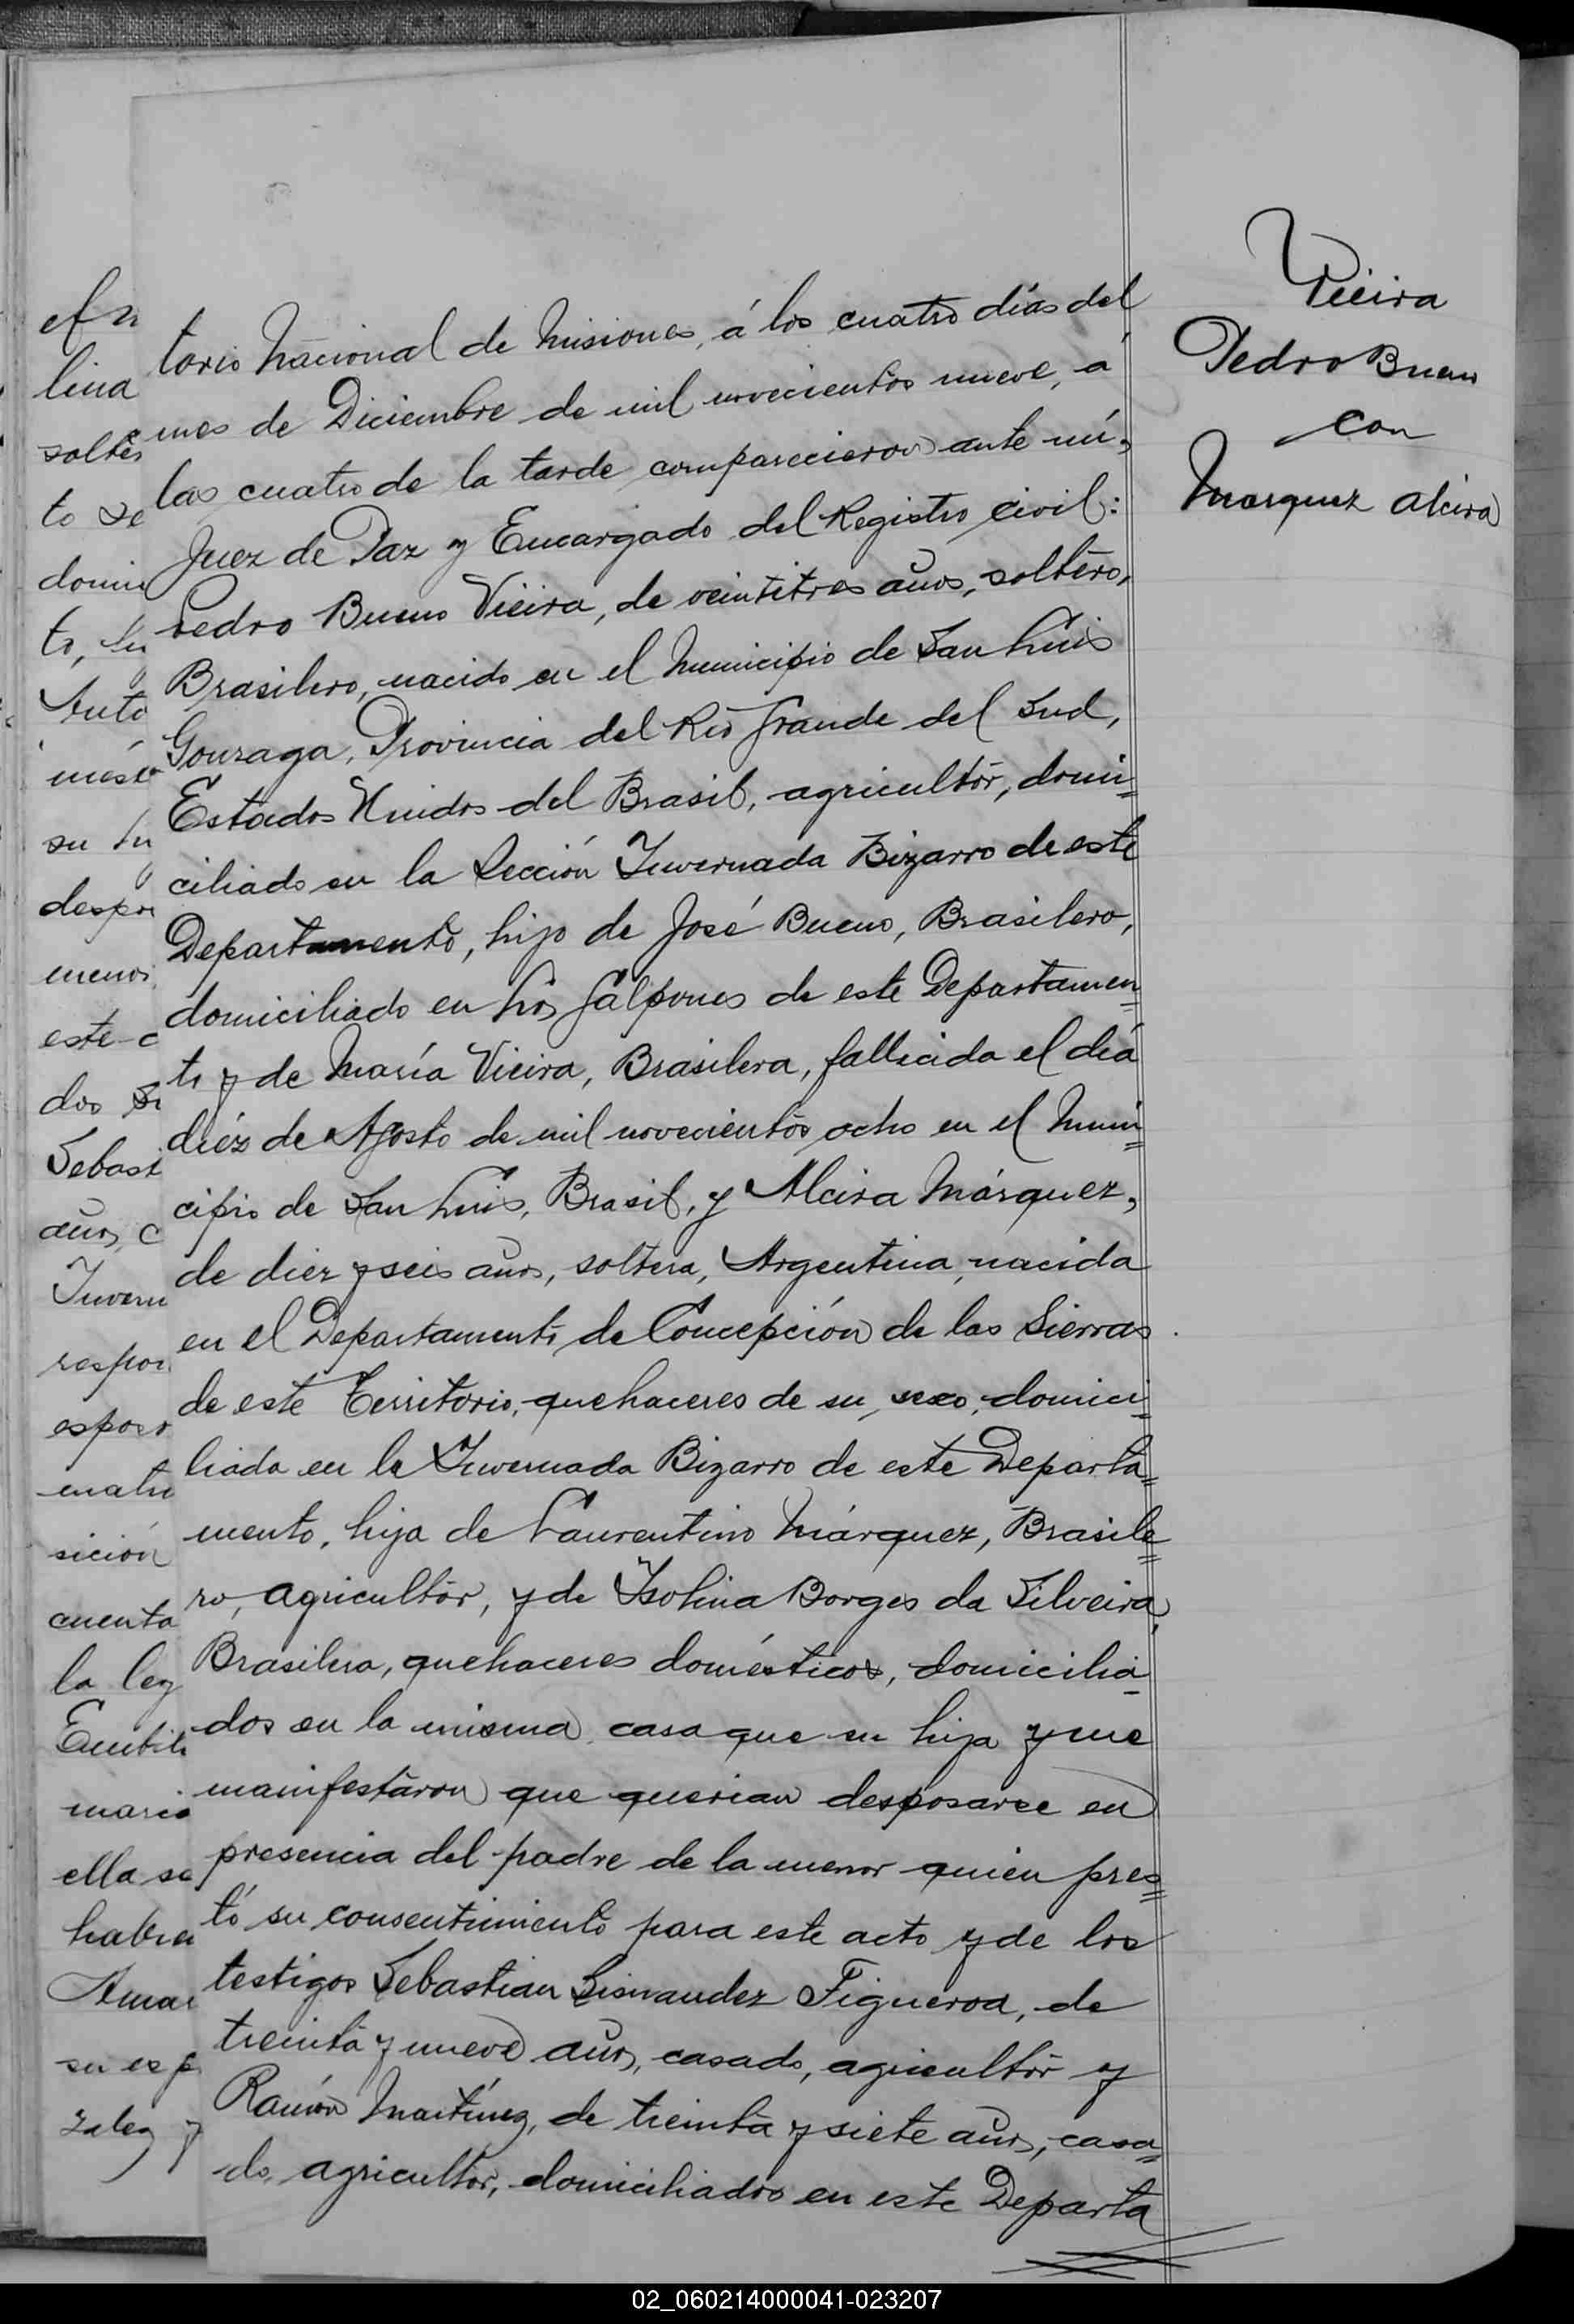 Vieira
Pedro Bueno
con
Marquez Alcira
torio Nacional de Misiones, á los cuatro días del
mes de Diciembre de mil novecientos nueve, á
las cuatro de la tarde comparecieron ante mí,
Juez de Paz y Encargado del Registro civil:
Pedro Bueno Vieira, de veintitres años, soltero,
Brasilero, nacido en el Municipio de San Luis
Gonzaga, Provincia del Río Grande del Sud,
Estados Unidos del Brasil, agricultor, domi=
ciliado en la Sección Invernada Bizarro de este
Departamento, hijo de José Bueno, Brasilero,
domiciliado en Los Galpones de este Departamen=
to y de María Vieira, Brasilera, fallecida el día
diéz de Agosto de mil novecientos ocho en el Muni=
cipio de San Luis, Brasil, y Alcira Márquez,
de diez y seis años, soltera, Argentina, nacida
en el Departamento de Concepción de las Sierras
de este Territorio, quehaceres de su sexo, domici=
liada en la Invernada Bizarro de este Departa=
mento, hija de Laurentino Márquez, Brasile=
ro, agricultor, y de Isolina Borges da Silveira,
Brasilera, quehaceres domésticos, domicilia=
dos en la misma casa que su hija y me
manifestaron que querian desposarse en
presencia del padre de la menor quien pres=
tó su consentimiento para este acto y de los
testigos Sebastian Lisnandez Figueroa, de
treinta y nueve años, casado, agricultor y
Ramón Martínez, de treinta y siete años, casa=
do, agricultor, domiciliados en este Departa
02_060214000041-023207